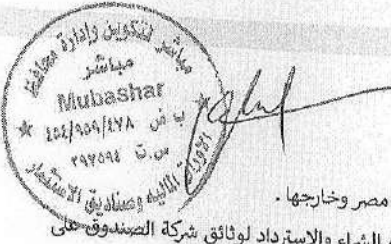 مباشر لتكوين وإدارة محافظ
الأوراق المالية وصناديق الاستثمار
مباشر
Mubashar
ب ض ٤٥٤/٩٥٩/٤٧٨
س.ت ٣٩٧٥٩٤
مصر وخارجها .
الشراء والاسترداد لوثائق شركة الصندوق على